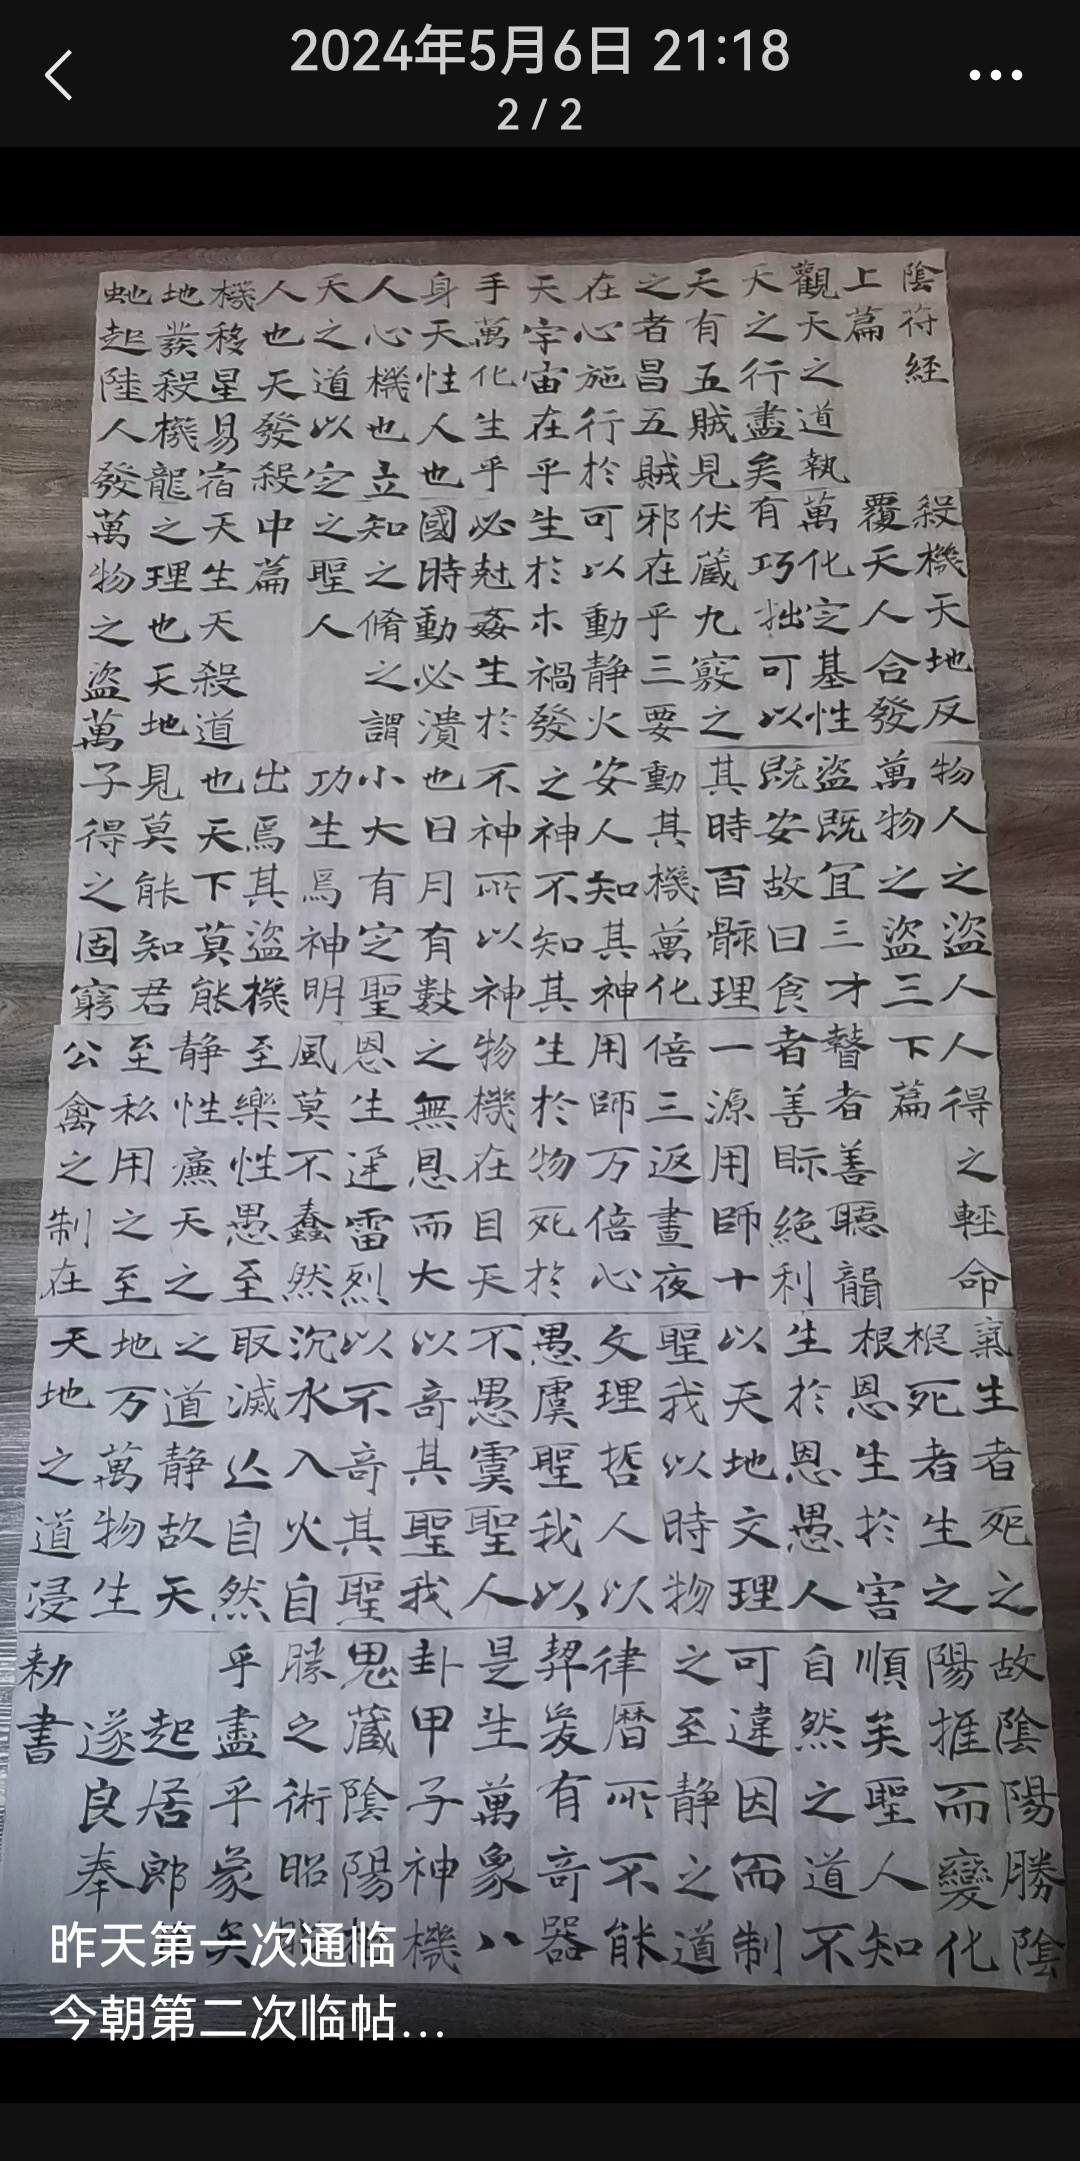 2024年5月6日 21:18
2 / 2
陰符經
上篇
觀天之道執
天之行盡矣
天有五賊見
之者昌五賊
在心施行於
天宇宙在乎
手萬化生乎
身天性人也
人心機也立
天之道以定
人也天發殺
機移星易宿
地發殺機龍
虵起陸人發
殺機天地反
覆天人合發
萬化定基性
有巧拙可以
伏藏九竅之
邪在乎三要
可以動静火
生於木禍發
必尅姦生於
國時動必潰
知之脩之謂
之聖人
中篇
天生天殺道
之理也天地
萬物之盜萬
物人之盜人
萬物之盜三
盜既宜三才
既安故曰食
其時百骸理
動其機萬化
安人知其神
之神不知其
不神所以神
也日月有數
小大有定聖
功生焉神明
出焉其盜機
也天下莫能
見莫能知君
子得之固窮
人得之輕命
下篇
瞽者善聽聾
者善眎絶利
一源用師十
倍三返晝夜
用師万倍心
生於物死於
物機在目天
之無恩而大
恩生迅雷烈
風莫不蠢然
至樂性愚至
静性廉天之
至私用之至
公禽之制在
氣生者死之
根死者生之
根恩生於害
生於恩愚人
以天地文理
聖我以時物
文理哲人以
愚虞聖我以
不愚虞聖人
以奇其聖我
以不奇其聖
沉水入火自
取滅亡自然
之道静故天
地万萬物生
天地之道浸
故陰陽勝陰
陽推而變化
順矣聖人知
自然之道不
可違因而制
之至静之道
律曆所不能
契爰有奇器
是生萬象八
卦甲子神機
鬼藏陰陽
勝之術昭
乎盡乎象矣
起居郎
遂良奉
勑書
昨天第一次通临
今朝第二次临帖…